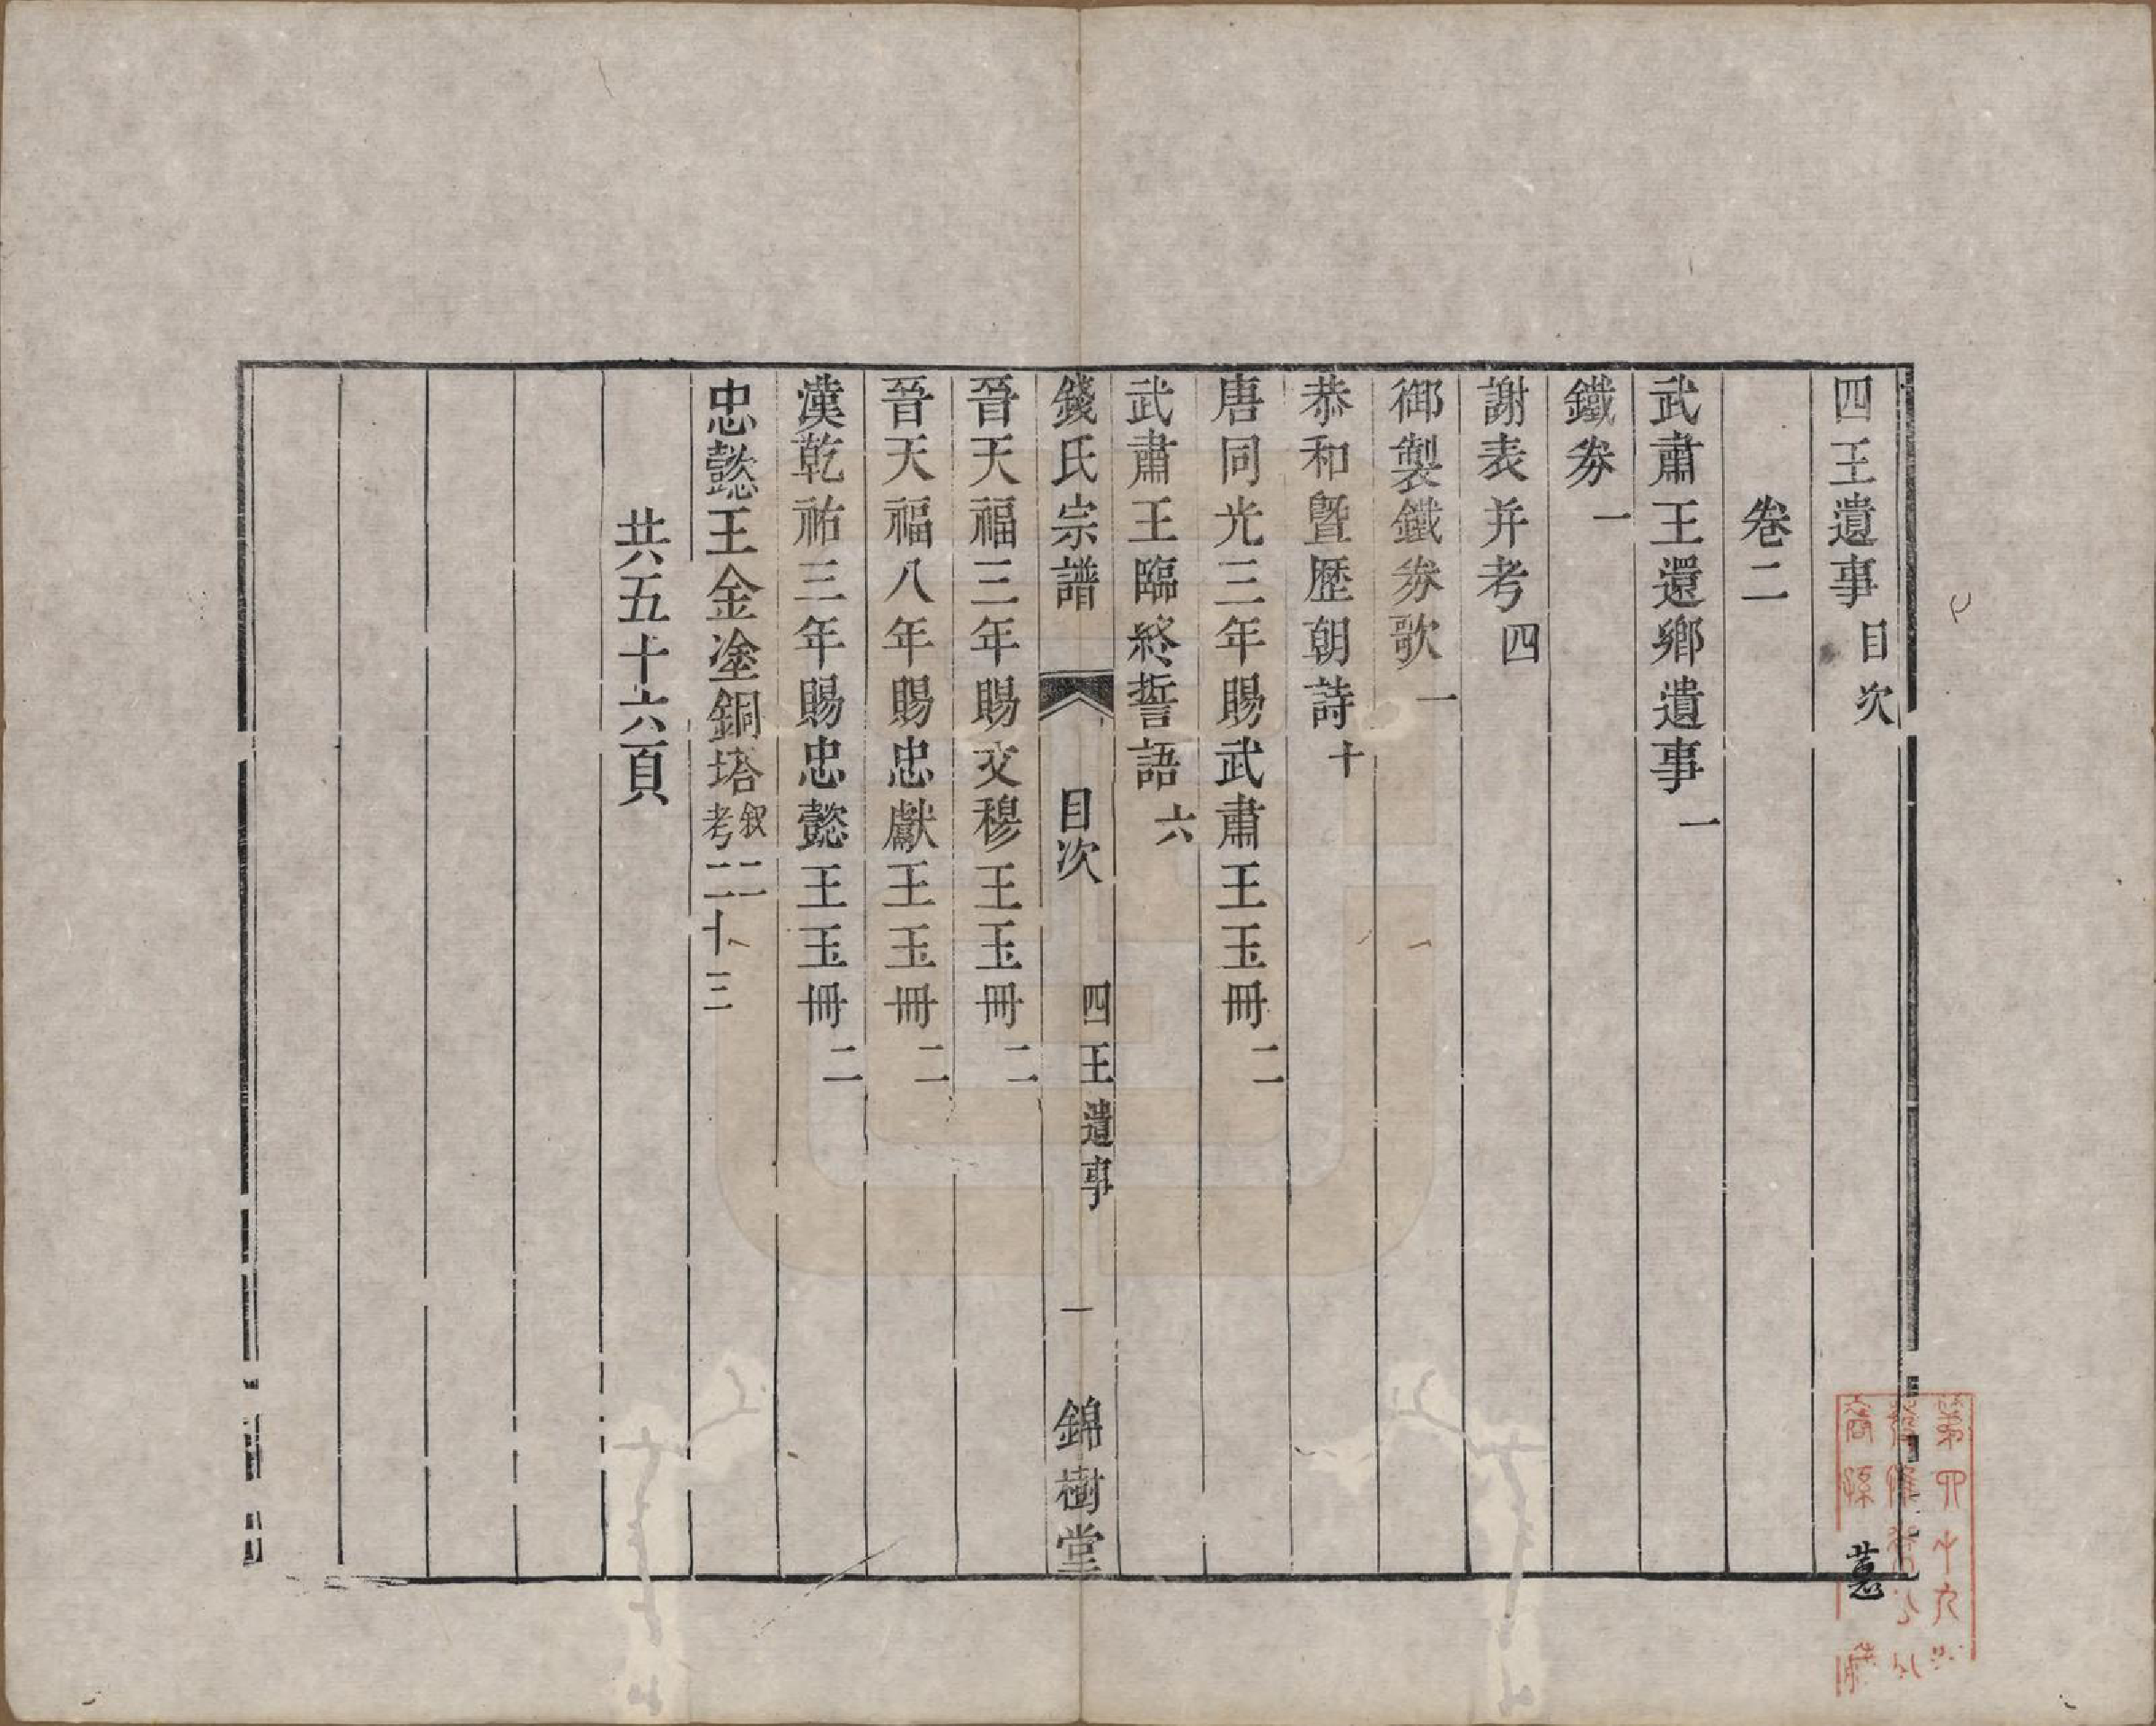 四王遺事目次
卷二
武肅王還鄉遺事一
鐵券一
謝表并考四
御製鐵券歌一
恭和曁歷朝詩十
唐同光三年賜武肅王玉冊二
武肅王臨終誓語六
錢氏宗譜 目次 四王遺事 一 錦樹堂
晉天福三年賜文穆王玉冊二
晉天福八年賜忠獻王玉冊二
漢乾祐三年賜忠懿王玉冊二
忠懿王金塗銅塔叙二考二十三
共五十六頁